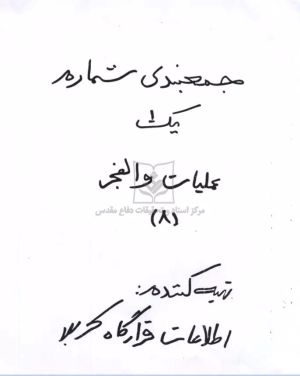 جمعبندی شماره
یک ۱
عملیات والفجر
مرکز اسناد و تحقیقات دفاع مقدس
(۸)
تهیه کننده:
اطلاعات قرارگاه کربلا